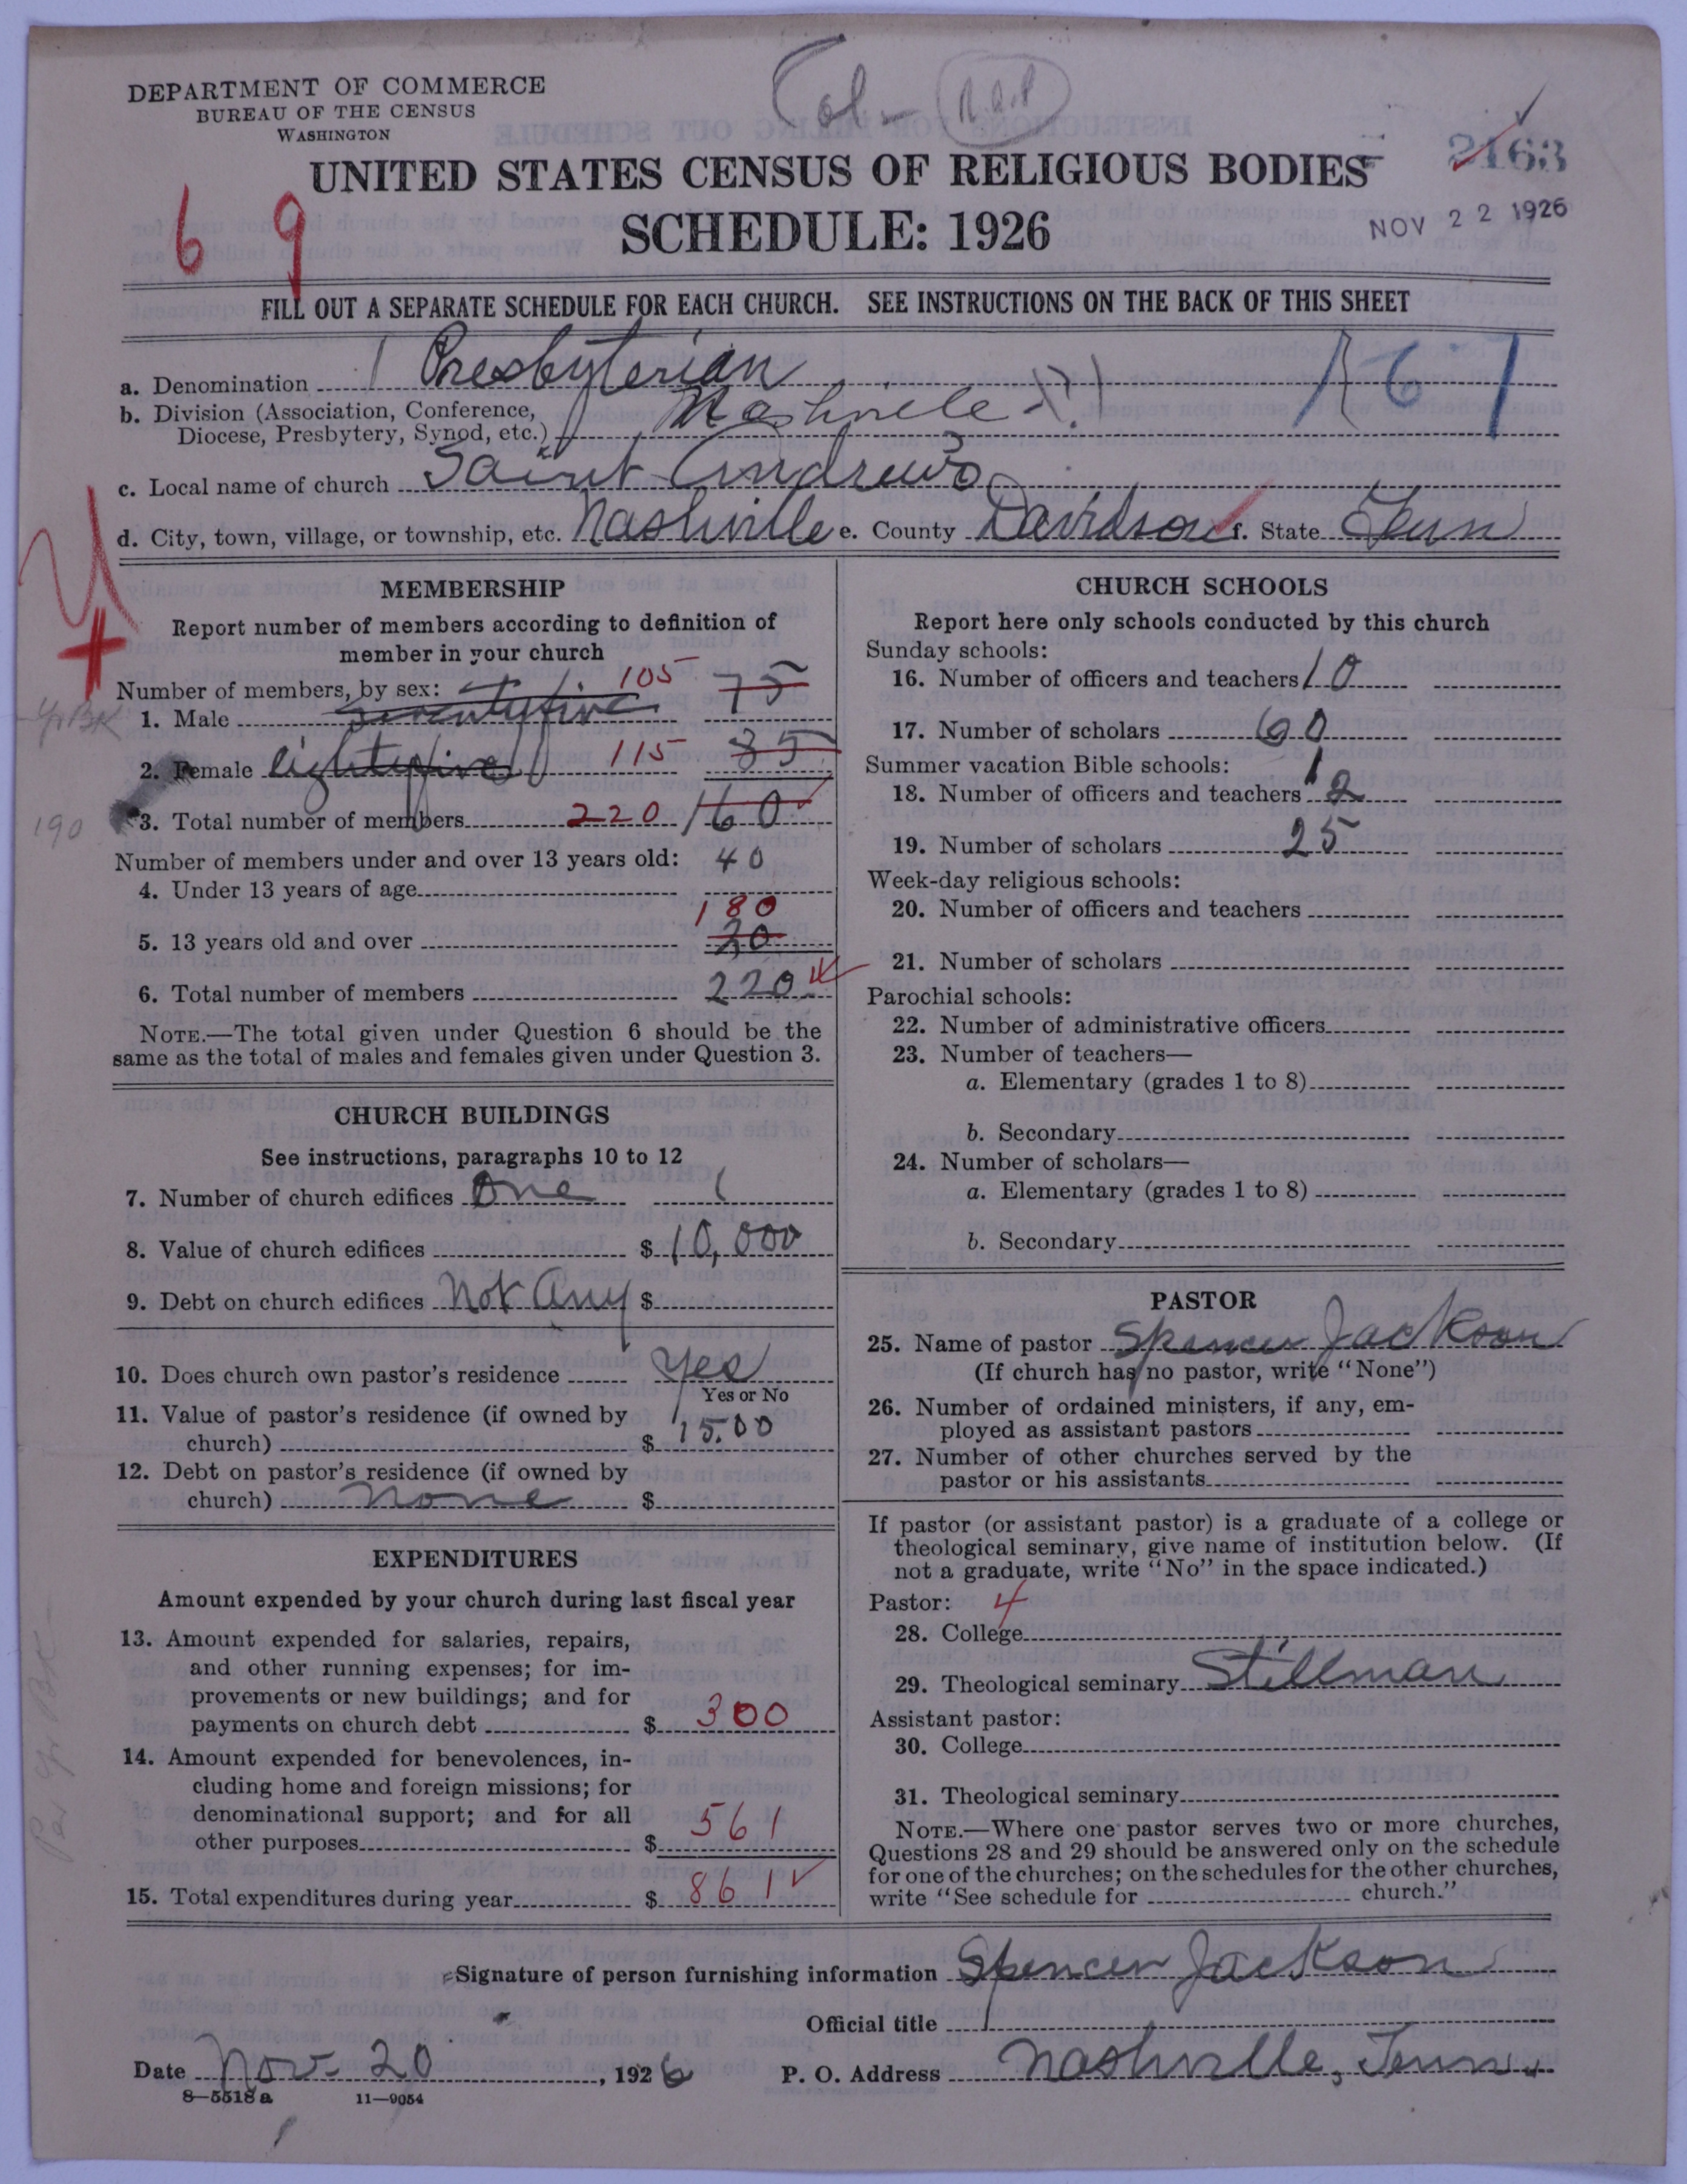 DEPARTMENT OF COMMERCE
BUREAU OF THE CENSUS
WASHINGTON
Col-
UNITED STATES CENSUS OF RELIGIOUS BODIES
2163
SCHEDULE: 1926
NOV 22 1926
6 9
FILL OUT A SEPARATE SCHEDULE FOR EACH CHURCH. SEE INSTRUCTIONS ON THE BACK OF THIS SHEET
a. Denomination Presbyterian
b. Division (Association, Conference, Diocese, Presbytery, Synod, etc.) Nashville
c. Local name of church Saint Andrews
d. City, town, village, or township, etc. Nashville e. County Davidson f. State Tenn
MEMBERSHIP
Report number of members according to definition of
member in your church
Number of members, by sex:
1. Male seventyfive 105 75
2. Female eightyfive 115 85
190
3. Total number of members 220 160
Number of members under and over 13 years old:
4. Under 13 years of age 40
180
5. 13 years old and over 30
6. Total number of members 220
NOTE.—The total given under Question 6 should be the
same as the total of males and females given under Question 3.
CHURCH BUILDINGS
See instructions, paragraphs 10 to 12
7. Number of church edifices One 1
8. Value of church edifices $ 10,000
9. Debt on church edifices Not Any $
10. Does church own pastor's residence Yes
Yes or No
11. Value of pastor's residence (if owned by
church) $ 15.00
12. Debt on pastor's residence (if owned by
church) none $
EXPENDITURES
Amount expended by your church during last fiscal year
13. Amount expended for salaries, repairs,
and other running expenses; for im-
provements or new buildings; and for
payments on church debt $ 300
14. Amount expended for benevolences, in-
cluding home and foreign missions; for
denominational support; and for all
other purposes $ 561
15. Total expenditures during year $ 861
CHURCH SCHOOLS
Report here only schools conducted by this church
Sunday schools:
16. Number of officers and teachers 10
17. Number of scholars 60
Summer vacation Bible schools:
18. Number of officers and teachers 2
19. Number of scholars 25
Week-day religious schools:
20. Number of officers and teachers
21. Number of scholars
Parochial schools:
22. Number of administrative officers
23. Number of teachers—
a. Elementary (grades 1 to 8)
b. Secondary
24. Number of scholars—
a. Elementary (grades 1 to 8)
b. Secondary
PASTOR
25. Name of pastor Spencer Jackson
(If church has no pastor, write "None")
26. Number of ordained ministers, if any, em-
ployed as assistant pastors
27. Number of other churches served by the
pastor or his assistants
If pastor (or assistant pastor) is a graduate of a college or
theological seminary, give name of institution below. (If
not a graduate, write "No" in the space indicated.)
Pastor: 4
28. College
29. Theological seminary Stillman
Assistant pastor:
30. College
31. Theological seminary
NOTE.—Where one pastor serves two or more churches,
Questions 28 and 29 should be answered only on the schedule
for one of the churches; on the schedules for the other churches,
write "See schedule for church."
Signature of person furnishing information Spencer Jackson
Official title
Date Nov. 20, 1926 P. O. Address Nashville, Tenn.
8—5518 a 11—9054